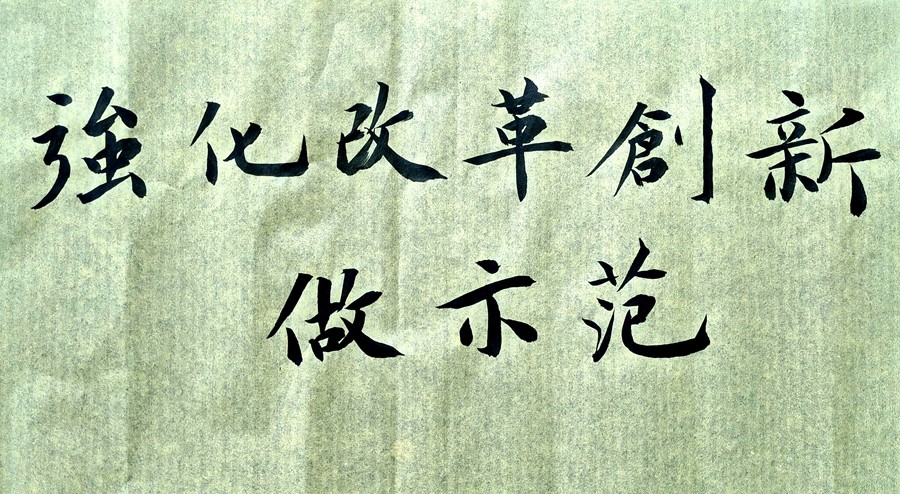 強化改革創新
做示范